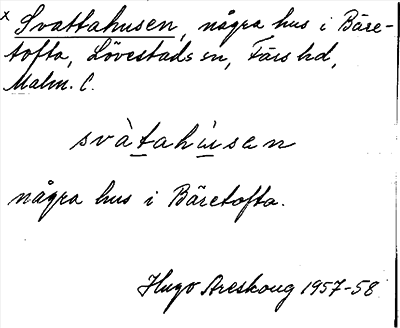 x Svattahusen, några hus i Bäre-
tofta, Lövestads sn, Färs hd,
Malm. C.
svàtahùsen
några hus i Bäretofta.
Hugo Areskoug 1957-58